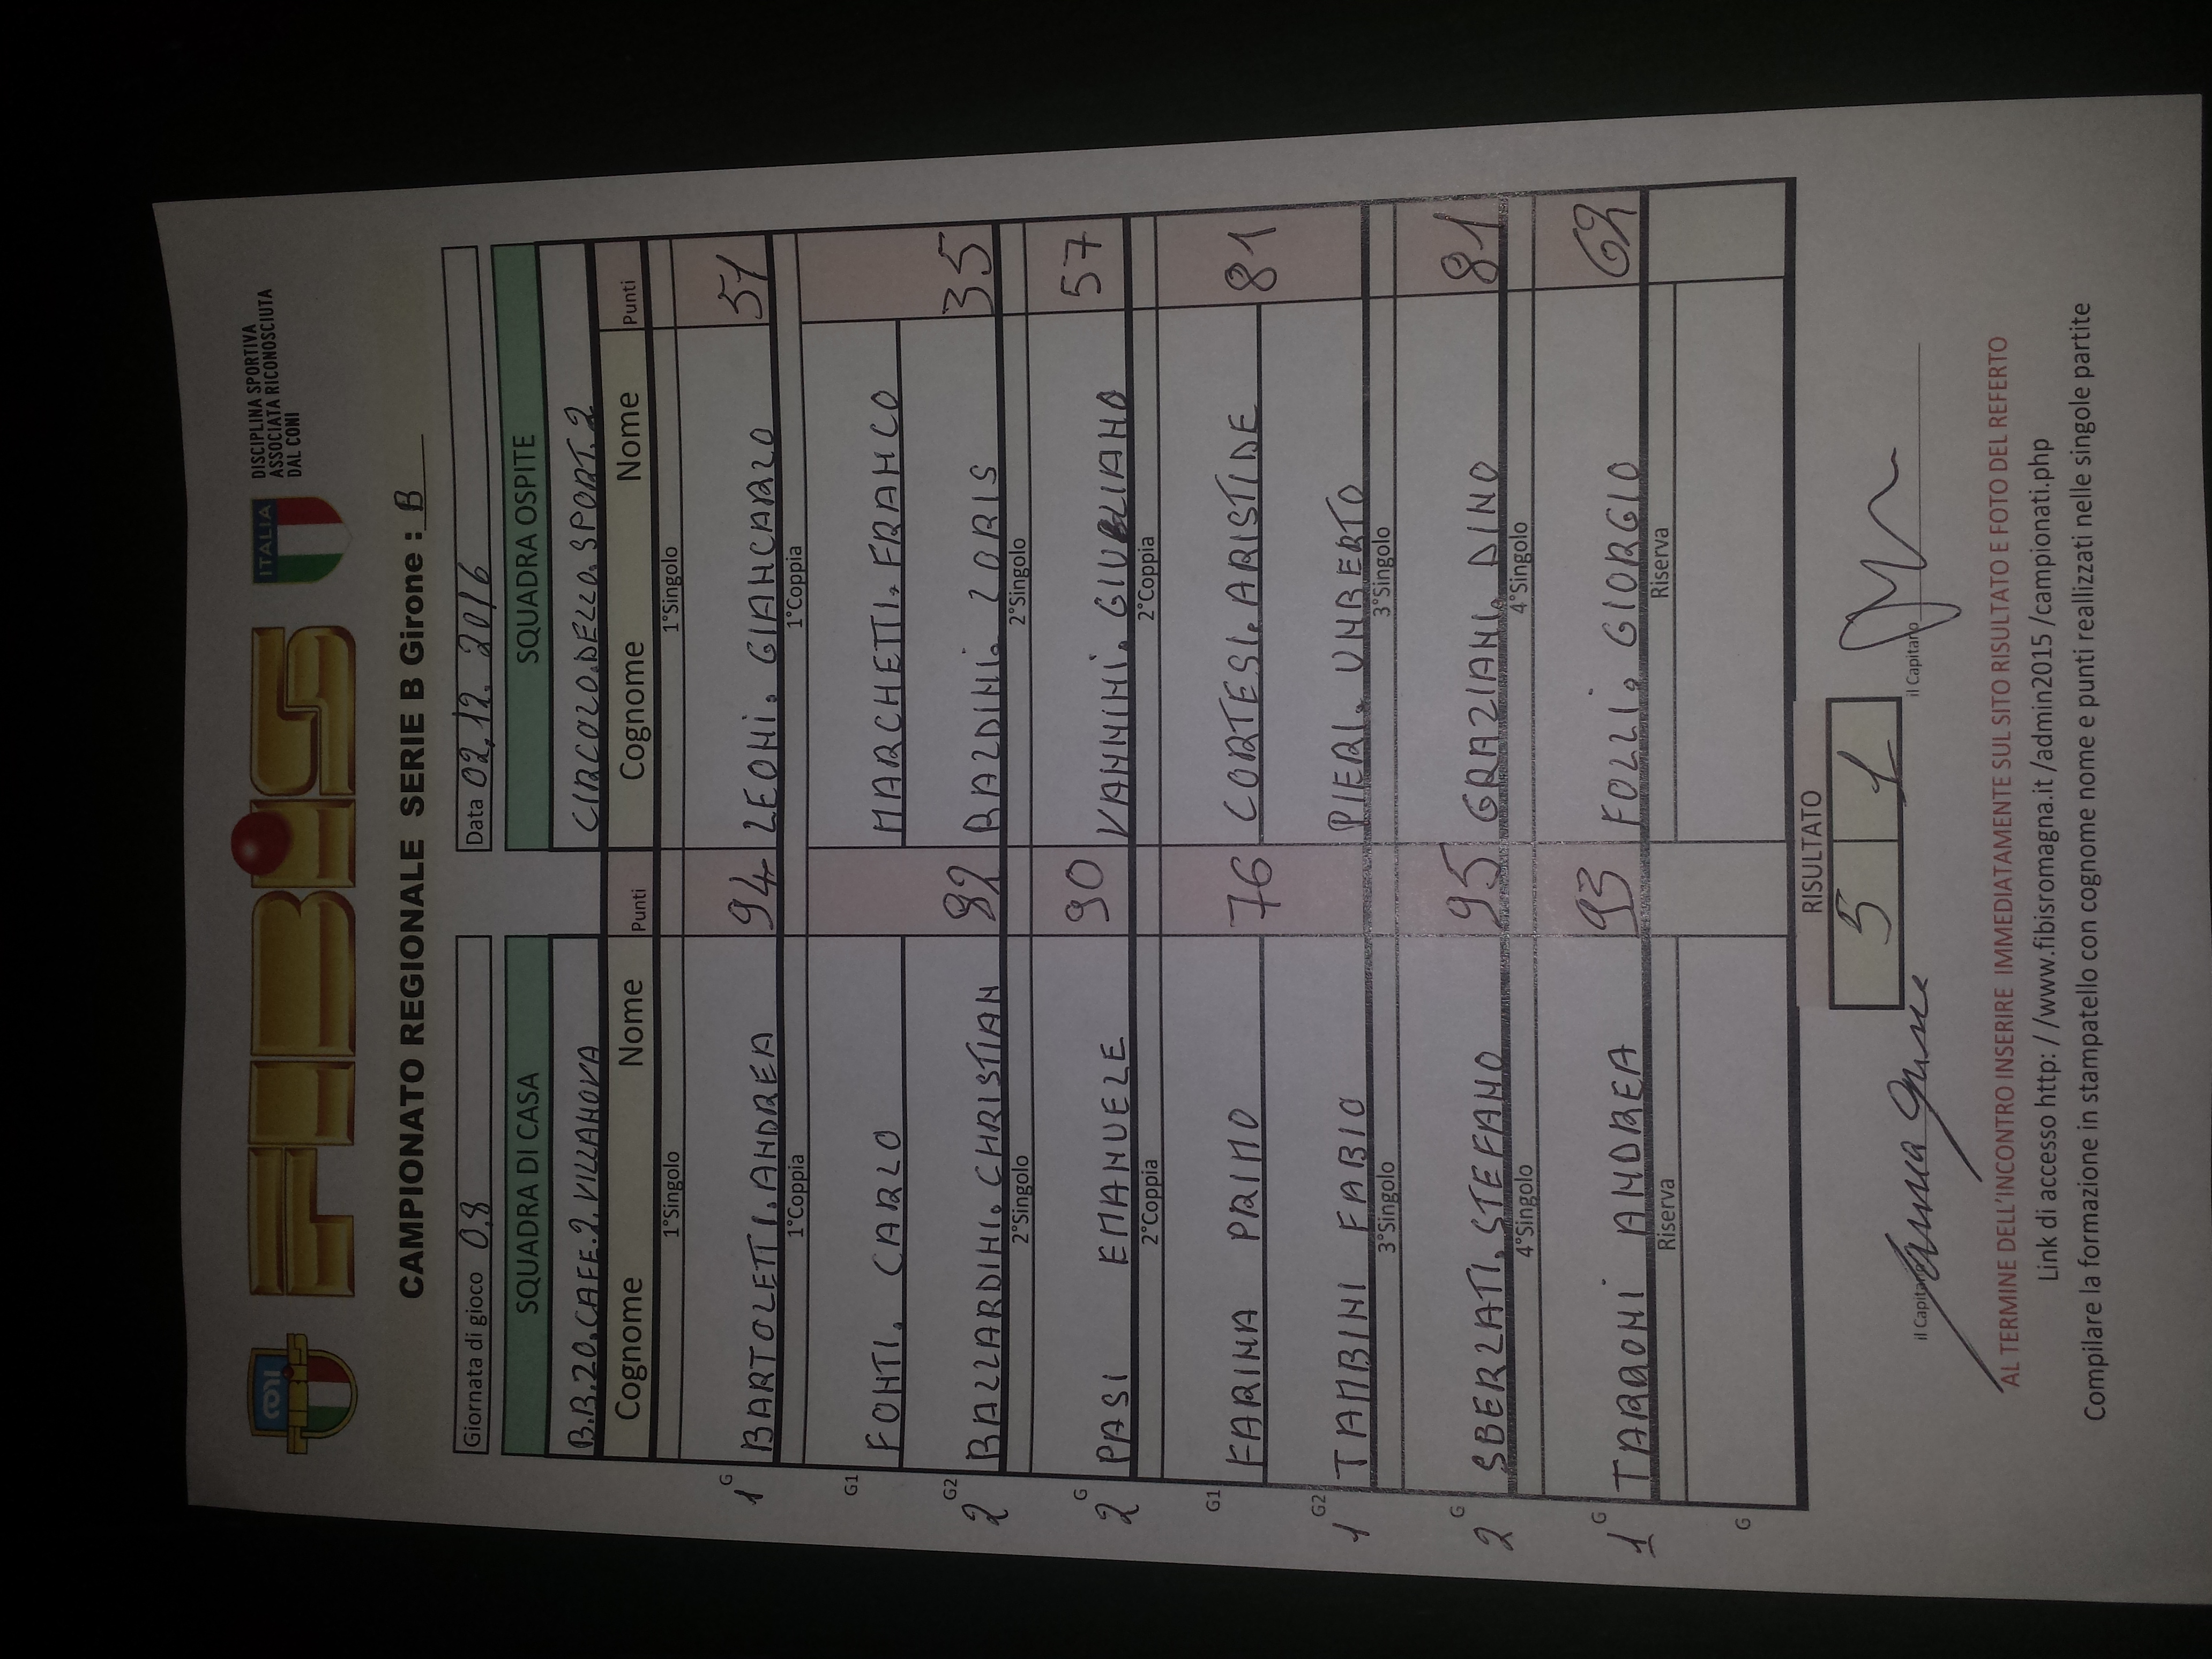 CONI FIBiS
FIBiS
ITALIA
DISCIPLINA SPORTIVA
ASSOCIATA RICONOSCIUTA
DAL CONI
CAMPIONATO REGIONALE SERIE B Girone : B
Giornata di gioco 08 Data 02.12.2016
SQUADRA DI CASA SQUADRA OSPITE
B.B.20.CAFE.2.VILLANOVA CIRCOLO.DELLO.SPORT.2
Cognome Nome Punti Cognome Nome Punti
1°Singolo 1°Singolo
1 G BARTOLETTI.ANDREA 94 LEONI. GIANCARLO 51
1°Coppia 1°Coppia
G1 FONTI. CARLO MARCHETTI. FRANCO
2 G2 BALLARDINI. CHRISTIAN 82 BALDINI. LORIS 35
2°Singolo 2°Singolo
2 G PASI EMANUELE 90 VANNINI. GIULIANO 57
2°Coppia 2°Coppia
G1 FARINA PRIMO 76 CORTESI. ARISTIDE 81
1 G2 TAMBINI FABIO PIERI. UMBERTO
3°Singolo 3°Singolo
2 G SBERLATI. STEFANO 95 GRAZIANI. DINO 81
4°Singolo 4°Singolo
1 G TARRONI ANDREA 93 FOLLI. GIORGIO 62
Riserva Riserva
G
RISULTATO
5 1
il Capitano il Capitano
AL TERMINE DELL'INCONTRO INSERIRE IMMEDIATAMENTE SUL SITO RISULTATO E FOTO DEL REFERTO
Link di accesso http: //www.fibisromagna.it /admin2015 /campionati.php
Compilare la formazione in stampatello con cognome nome e punti reallizzati nelle singole partite